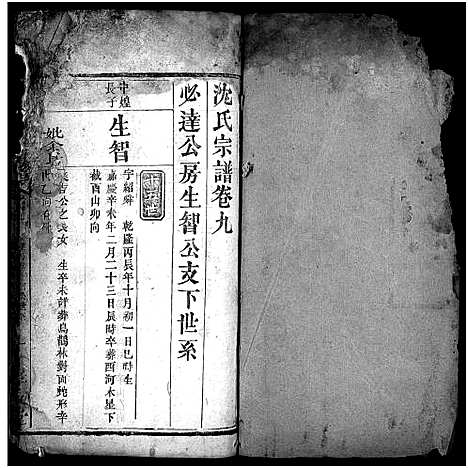 沈氏宗譜卷九
必達公房生智公支下世系
中煌
長子
生智
字紹舜 乾隆丙辰年十月初一日巳時生
嘉慶辛未年二月二十三日辰時卒葬酉河木星下
栽酉山卯向
妣余
公之長女 生卒未詳葬烏鵲林對面蛇形辛